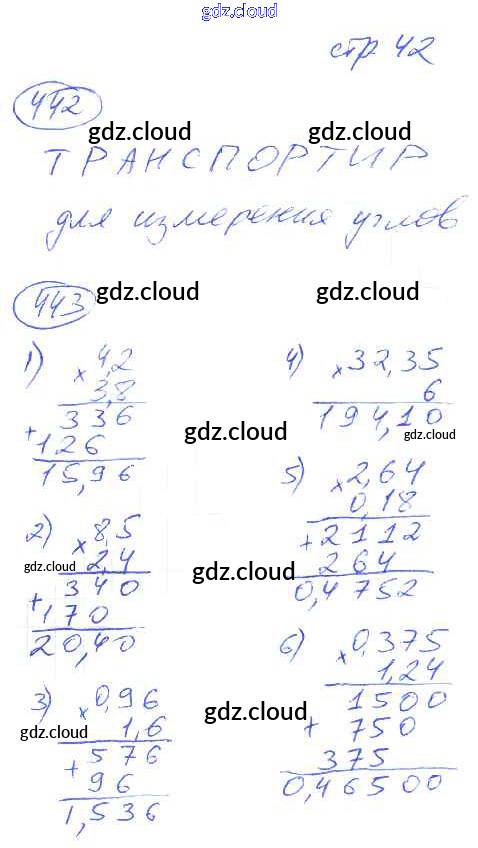 gdz.cloud
стр 42
442
gdz.cloud gdz.cloud
ТРАНСПОРТИР
для измерения углов
443 gdz.cloud gdz.cloud
1) × 4,2
3,8
336
+ 126
15,96
gdz.cloud
2) × 8,5
gdz.cloud 2,4
340
+ 170
20,40
3) × 0,96
gdz.cloud 1,6
+ 576
96
1,536
4) × 32,35
6
194,10
gdz.cloud
5) × 2,64
0,18
+ 2112
264
0,4752
gdz.cloud
6) × 0,375
1,24
1500
+ 750
375
0,46500
gdz.cloud
gdz.cloud